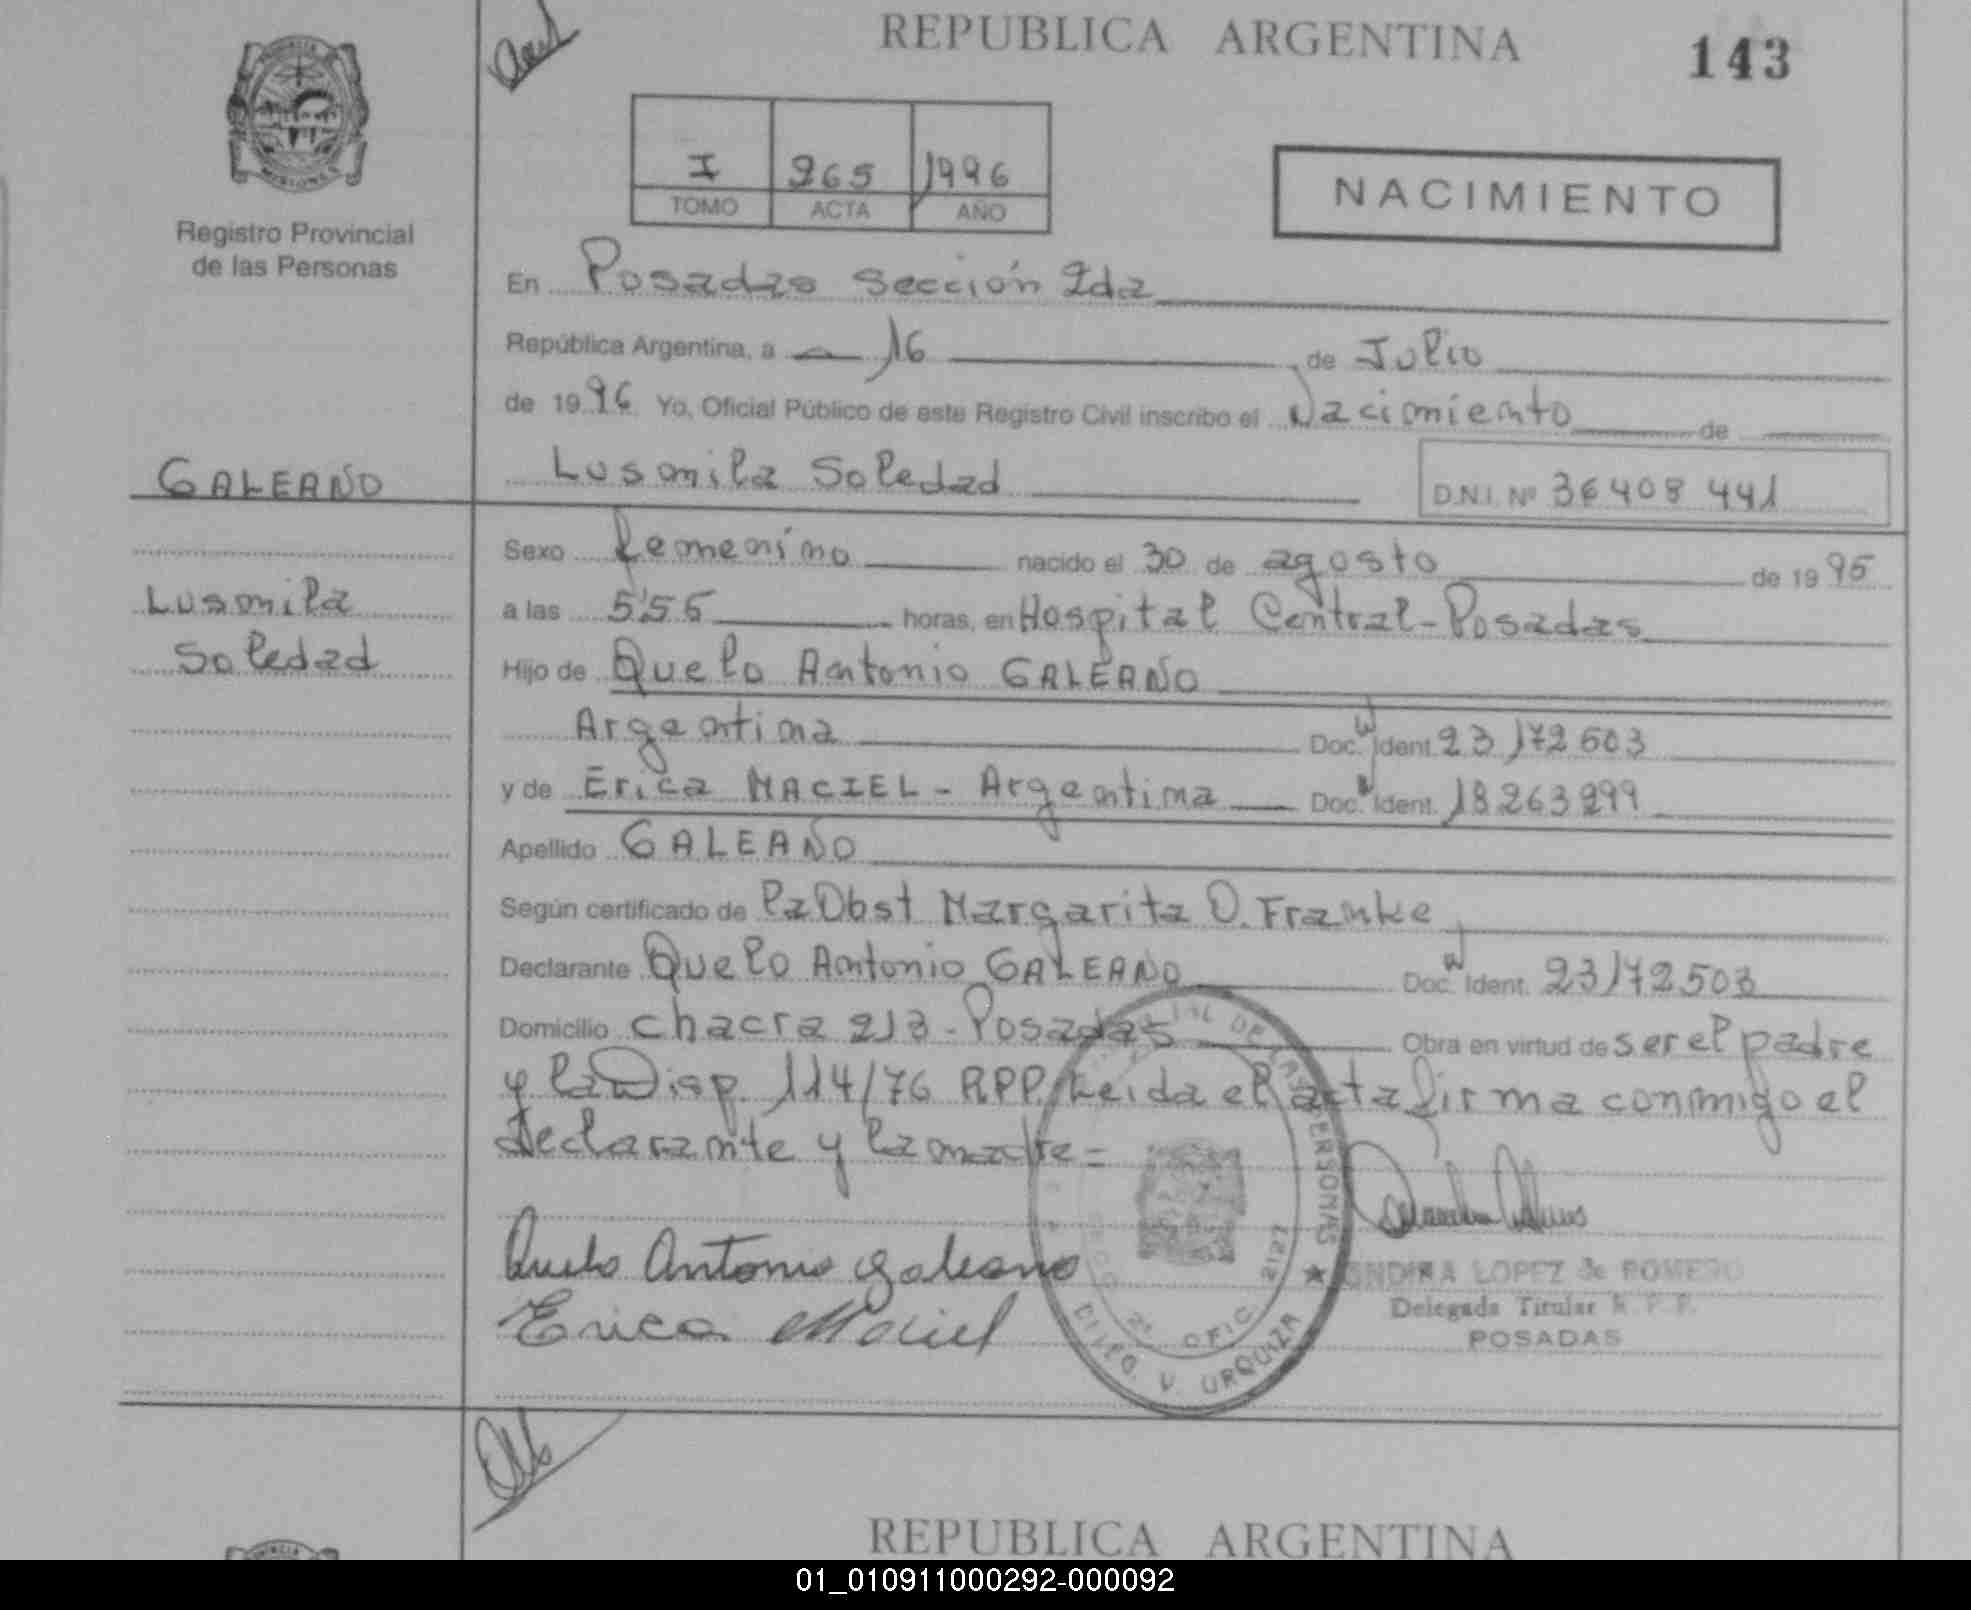 REPUBLICA ARGENTINA
143
I 265 1996
TOMO ACTA AÑO
NACIMIENTO
MISIONES
Registro Provincial
de las Personas
En Posadas Sección 2da
República Argentina, a 16 de Julio
de 1996 Yo, Oficial Público de este Registro Civil inscribo el Nacimiento de
GALEANO
Lusmila Soledad D.N.I. Nº 36 408 441
Sexo femenino nacido el 30 de agosto de 1995
Lusmila
a las 5:55 horas, en Hospital Central - Posadas
Soledad
Hijo de Quelo Antonio GALEANO
Argentina Doc. Ident. 23172503
y de Erica MACIEL - Argentina Doc. Ident. 18263299
Apellido GALEANO
Según certificado de la Obst Margarita O. Franke
Declarante Quelo Antonio GALEANO Doc. Ident. 23172503
Domicilio Chacra 213 - Posadas Obra en virtud de ser el padre
y la Disp. 114/76 RPP. Leida el acta firma conmigo el
declarante y la madre =
Quelo Antonio Galeano
Erica Maciel
DE LAS PERSONAS
2º OFIC. 2127
V. URQUIZA
LOPEZ de ROMERO
Delegada Titular R. P. P.
POSADAS
REPUBLICA ARGENTINA
01_010911000292-000092